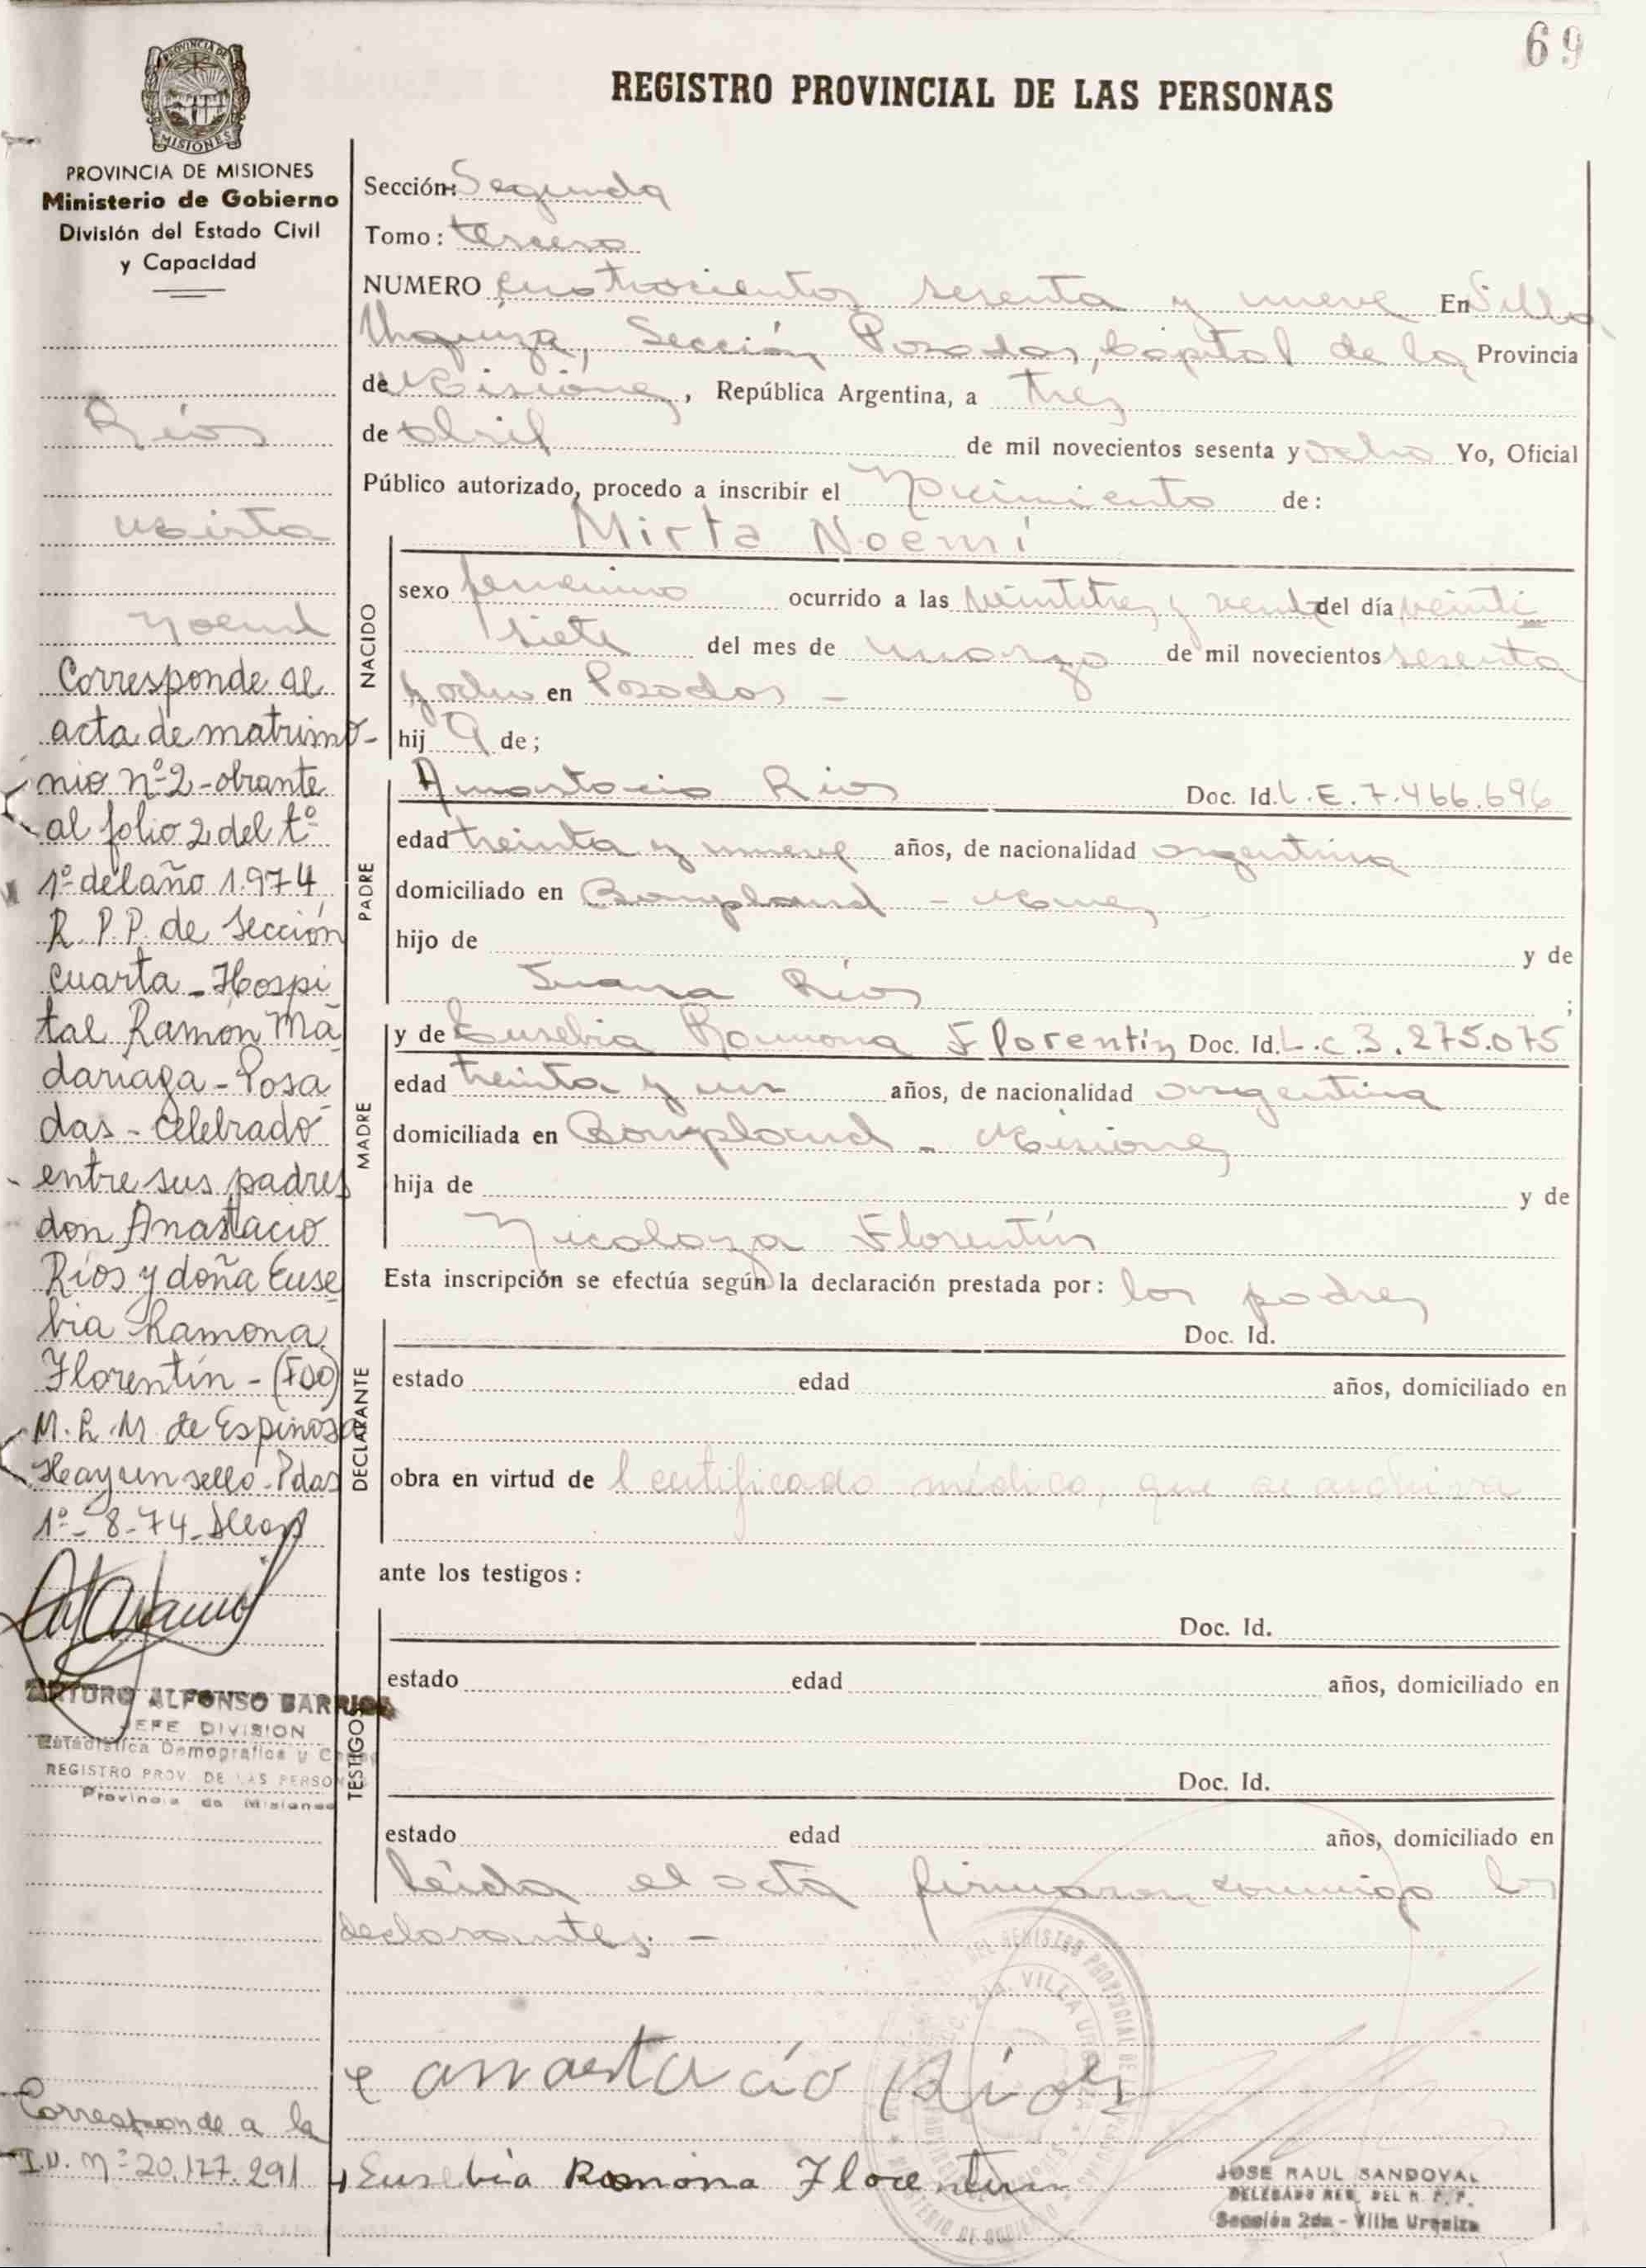 69
PROVINCIA DE
MISIONES
REGISTRO PROVINCIAL DE LAS PERSONAS
PROVINCIA DE MISIONES
Ministerio de Gobierno
División del Estado Civil
y Capacidad
Ríos
Mirta
Noemí
Corresponde al
acta de matrimo-
nio nº 2 - obrante
al folio 2 del tº
1º del año 1.974
R. P. P. de Sección
Cuarta - Hospi
tal Ramón Ma
dariaga - Posa
das - celebrado
entre sus padres
don Anastacio
Ríos y doña Euse
bia Ramona
Florentín - (FDO)
M. L. M. de Espinosa
Hay un sello. Pdas
1º - 8 - 74
ARTURO ALFONSO BARRIOS
JEFE DIVISION
Estadística Demografica y
REGISTRO PROV. DE LAS PERSON
Provincia de Misiones
Corresponde a la
I.D. Nº 20.127.291
Sección: Segunda
Tomo: tercero
NUMERO cuatrocientos sesenta y nueve En Villa
Urquiza, Sección Posadas, Capital de la Provincia
de Misiones, República Argentina, a tres
de abril de mil novecientos sesenta y ocho Yo, Oficial
Público autorizado, procedo a inscribir el Nacimiento de:
Mirta Noemí
NACIDO
sexo femenino ocurrido a las veintitres y veinte del día veinti
siete del mes de marzo de mil novecientos sesenta
y ocho en Posadas -
hij a de;
PADRE
Anastacio Ríos Doc. Id. L.E. 7.466.696
edad treinta y nueve años, de nacionalidad argentina
domiciliado en Bonpland - Mnes
hijo de y de
Juana Ríos ;
MADRE
y de Eusebia Ramona Florentín Doc. Id. L.C. 3.275.075
edad treinta y un años, de nacionalidad argentina
domiciliada en Bonpland - Misiones
hija de y de
Nicolaza Florentín
Esta inscripción se efectúa según la declaración prestada por: los padres
DECLARANTE
Doc. Id.
estado edad años, domiciliado en
obra en virtud de l certificado médico, que se archiva
ante los testigos:
TESTIGOS
Doc. Id.
estado edad años, domiciliado en
Doc. Id.
estado edad años, domiciliado en
Leída el acta firmaron conmigo los
declarantes. -
Anastacio Ríos
Eusebia Ramona Florentin
JOSE RAUL SANDOVAL
DELEGADO REG. DEL R. P. P.
Sección 2da - Villa Urquiza